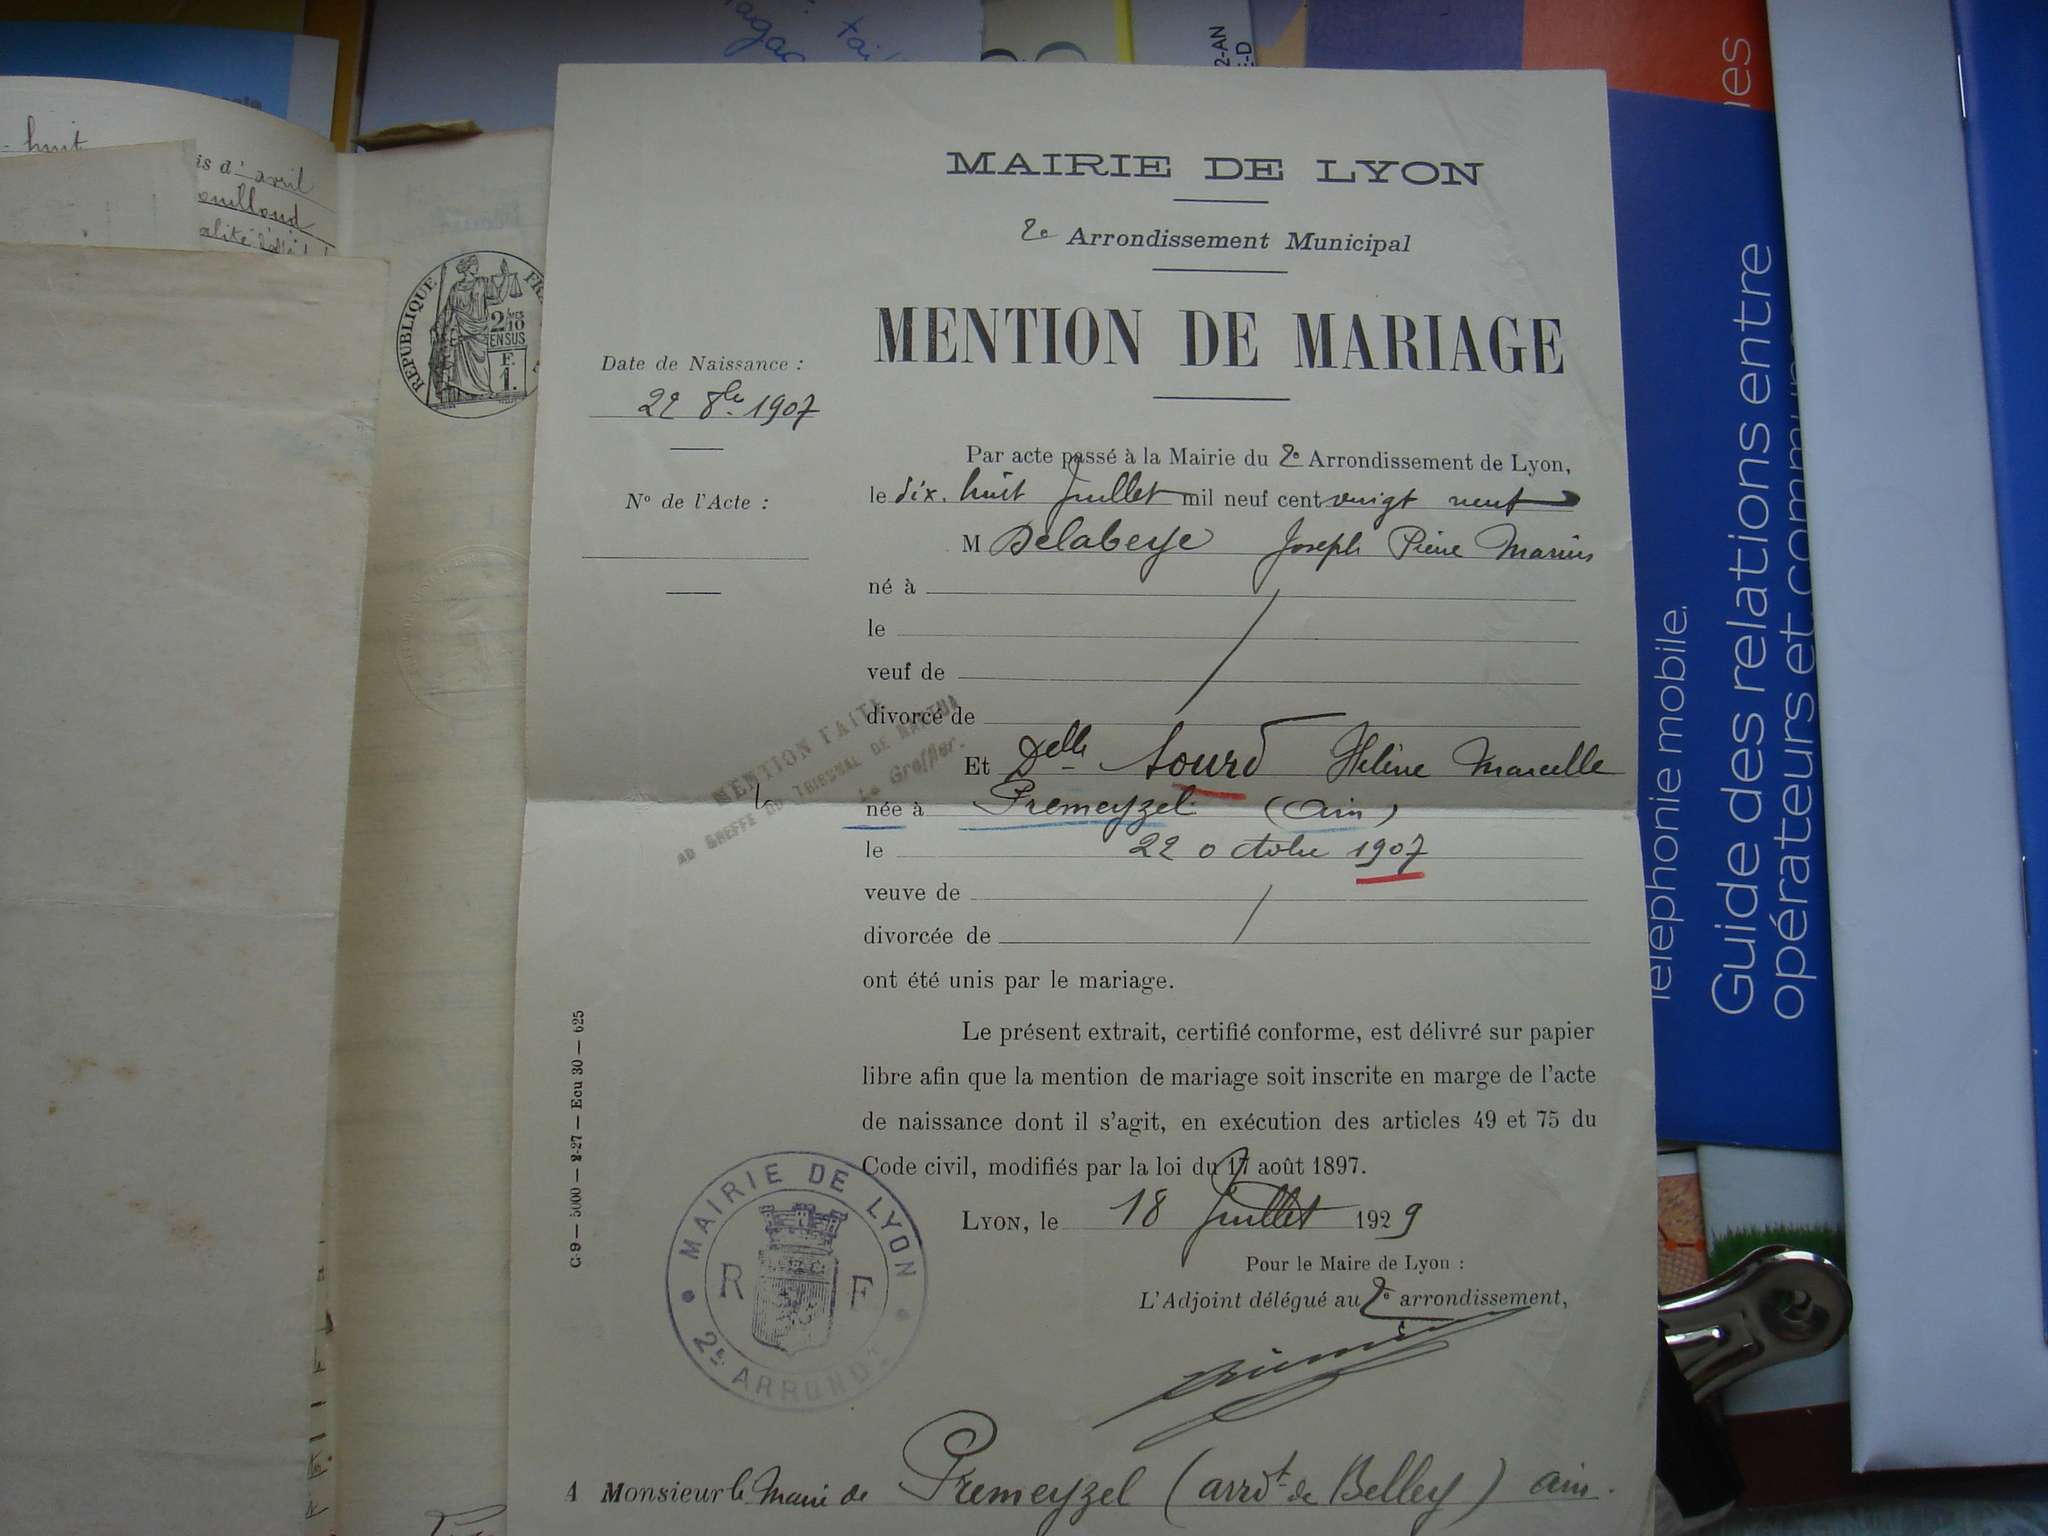 huit
is d'avril
RÉPUBLIQUE
2/10
EN SUS
F.
1.
2-AN
E-D
MAIRIE DE LYON
2e Arrondissement Municipal
MENTION DE MARIAGE
Date de Naissance :
22 8bre 1907
N° de l'Acte :
Par acte passé à la Mairie du 2e Arrondissement de Lyon,
le dix-huit Juillet mil neuf cent vingt neuf
M Delabeye Joseph Pierre Marius
né à
le
veuf de
divorcé de
Et Delle Sourd Hélène Marcelle
née à Premeyzel (Ain)
le 22 octobre 1907
veuve de
divorcée de
ont été unis par le mariage.
MENTION FAITE
AU GREFFE DU TRIBUNAL DE NANTUA
Le Greffier.
Le présent extrait, certifié conforme, est délivré sur papier
libre afin que la mention de mariage soit inscrite en marge de l'acte
de naissance dont il s'agit, en exécution des articles 49 et 75 du
Code civil, modifiés par la loi du 17 août 1897.
LYON, le 18 Juillet 1929
Pour le Maire de Lyon :
L'Adjoint délégué au 2e arrondissement,
MAIRIE DE LYON
R F
2e ARRONDt
A Monsieur le Maire de Premeyzel (arrdt de Belley) Ain.
C-9 — 5000 — 2-27 — Ecu 30 — 625
téléphonie mobile.
Guide des relations entre
opérateurs et communes